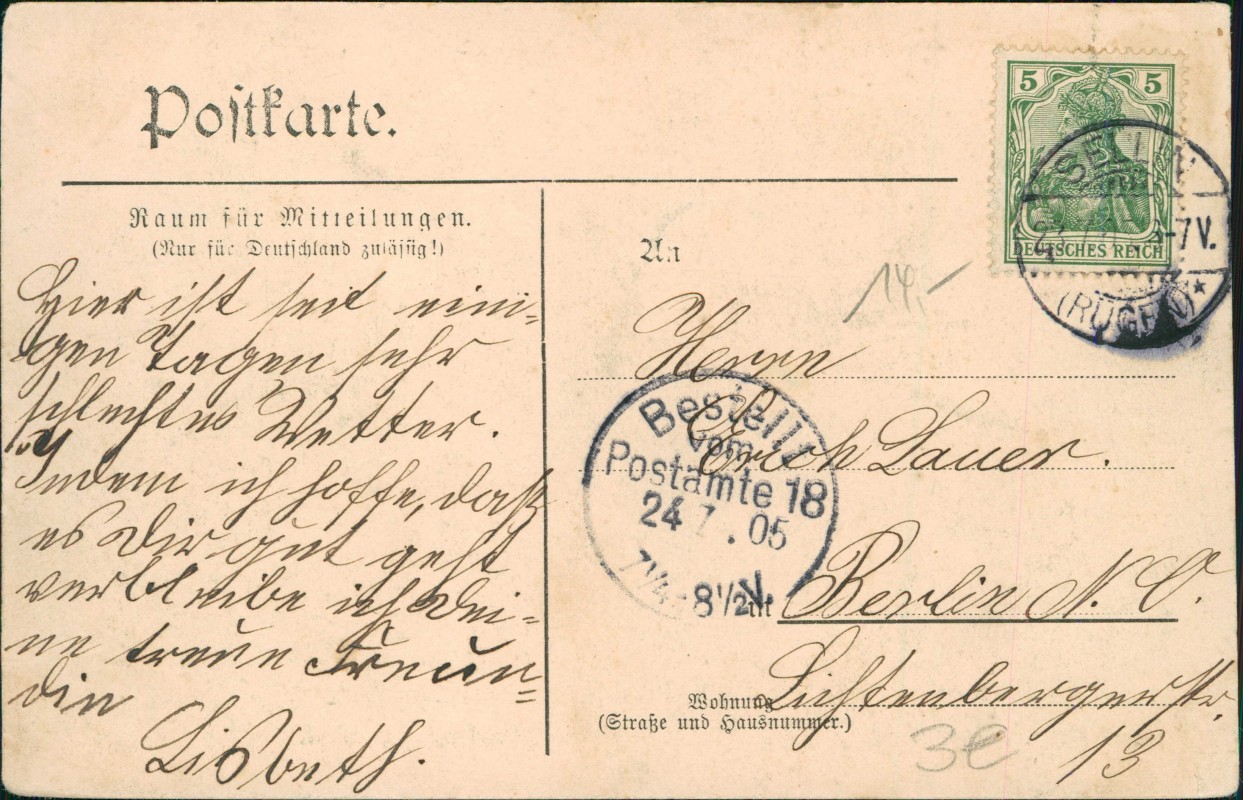 Postkarte.
Raum für Mitteilungen.
(Nur für Deutschland zulässig!)
Hier ist seit eini-
gen Tagen sehr
schlechtes Wetter.
Indem ich hoffe, daß
es Dir gut geht
verbleibe ich Dei-
ne treue Freun-
din
Lisbeth.
5 5
DEUTSCHES REICH
SELLIN
6-7V.
(RÜGEN) *
An
14,-
Herrn
Erich Lauer.
Bestellt
vom
Postamte 18
24 7. 05
7¼-8½V.
in Berlin N. O.
Wohnung
(Straße und Hausnummer.)
Lichtenbergerstr.
13
3e